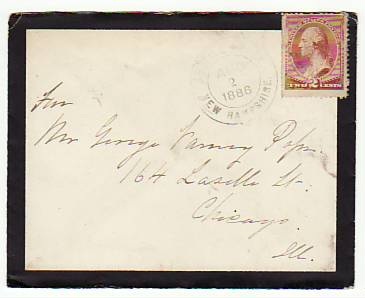 2
1886
NEW HAMPSHIRE.
TWO 2 CENTS
For
Mr George
164 Lasalle St.
Chicago.
Ill.